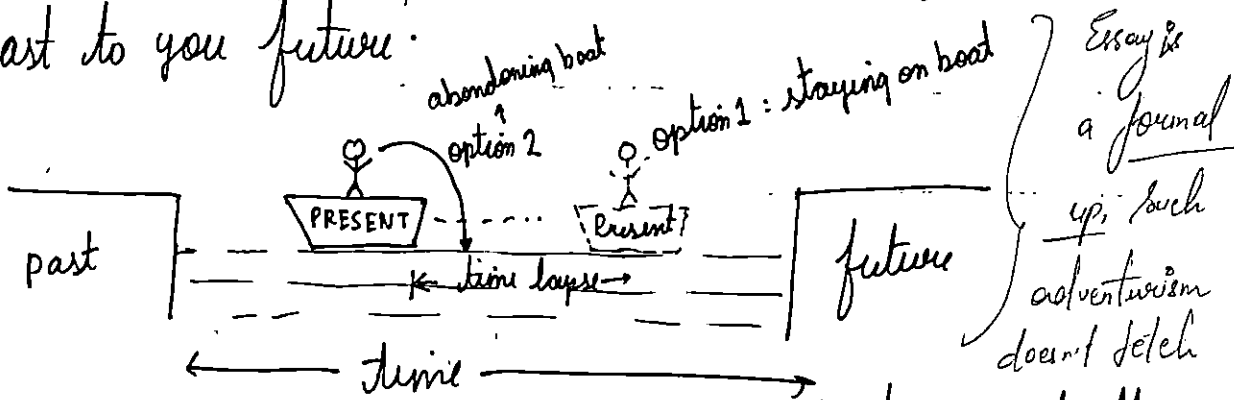 ast to you future.
abondoning boat
option 2
option 1 : staying on boat
PRESENT
Present
past
future
time lapse
time
Essay is
a formal
up, Such
adventurism
doesn't fetch